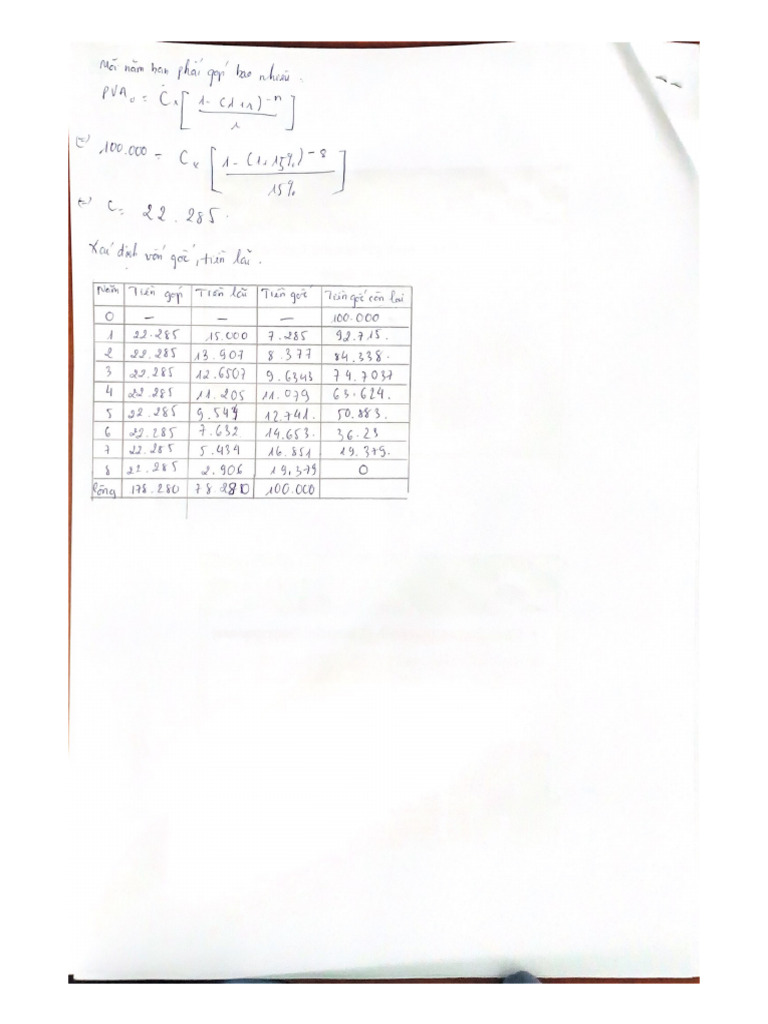 Mỗi năm bạn phải góp bao nhiêu.
PVA₀ = C × [ 1 - (1+i)^-n / i ]
(=) 100.000 = C × [ 1 - (1+15%)^-8 / 15% ]
(=) C = 22.285.
Xác định vốn gốc, tiền lãi.
Năm Tiền góp Tiền lãi Tiền gốc Tiền gốc còn lại
0 – – – 100.000
1 22.285 15.000 7.285 92.715.
2 22.285 13.907 8.377 84.338.
3 22.285 12.6507 9.6343 74.7037
4 22.285 11.205 11.079 63.624.
5 22.285 9.544 12.741. 50.883.
6 22.285 7.632 14.653. 36.23
7 22.285 5.434 16.851 19.379.
8 22.285 2.906 19.379 0
Cộng 178.280 78 280 100.000